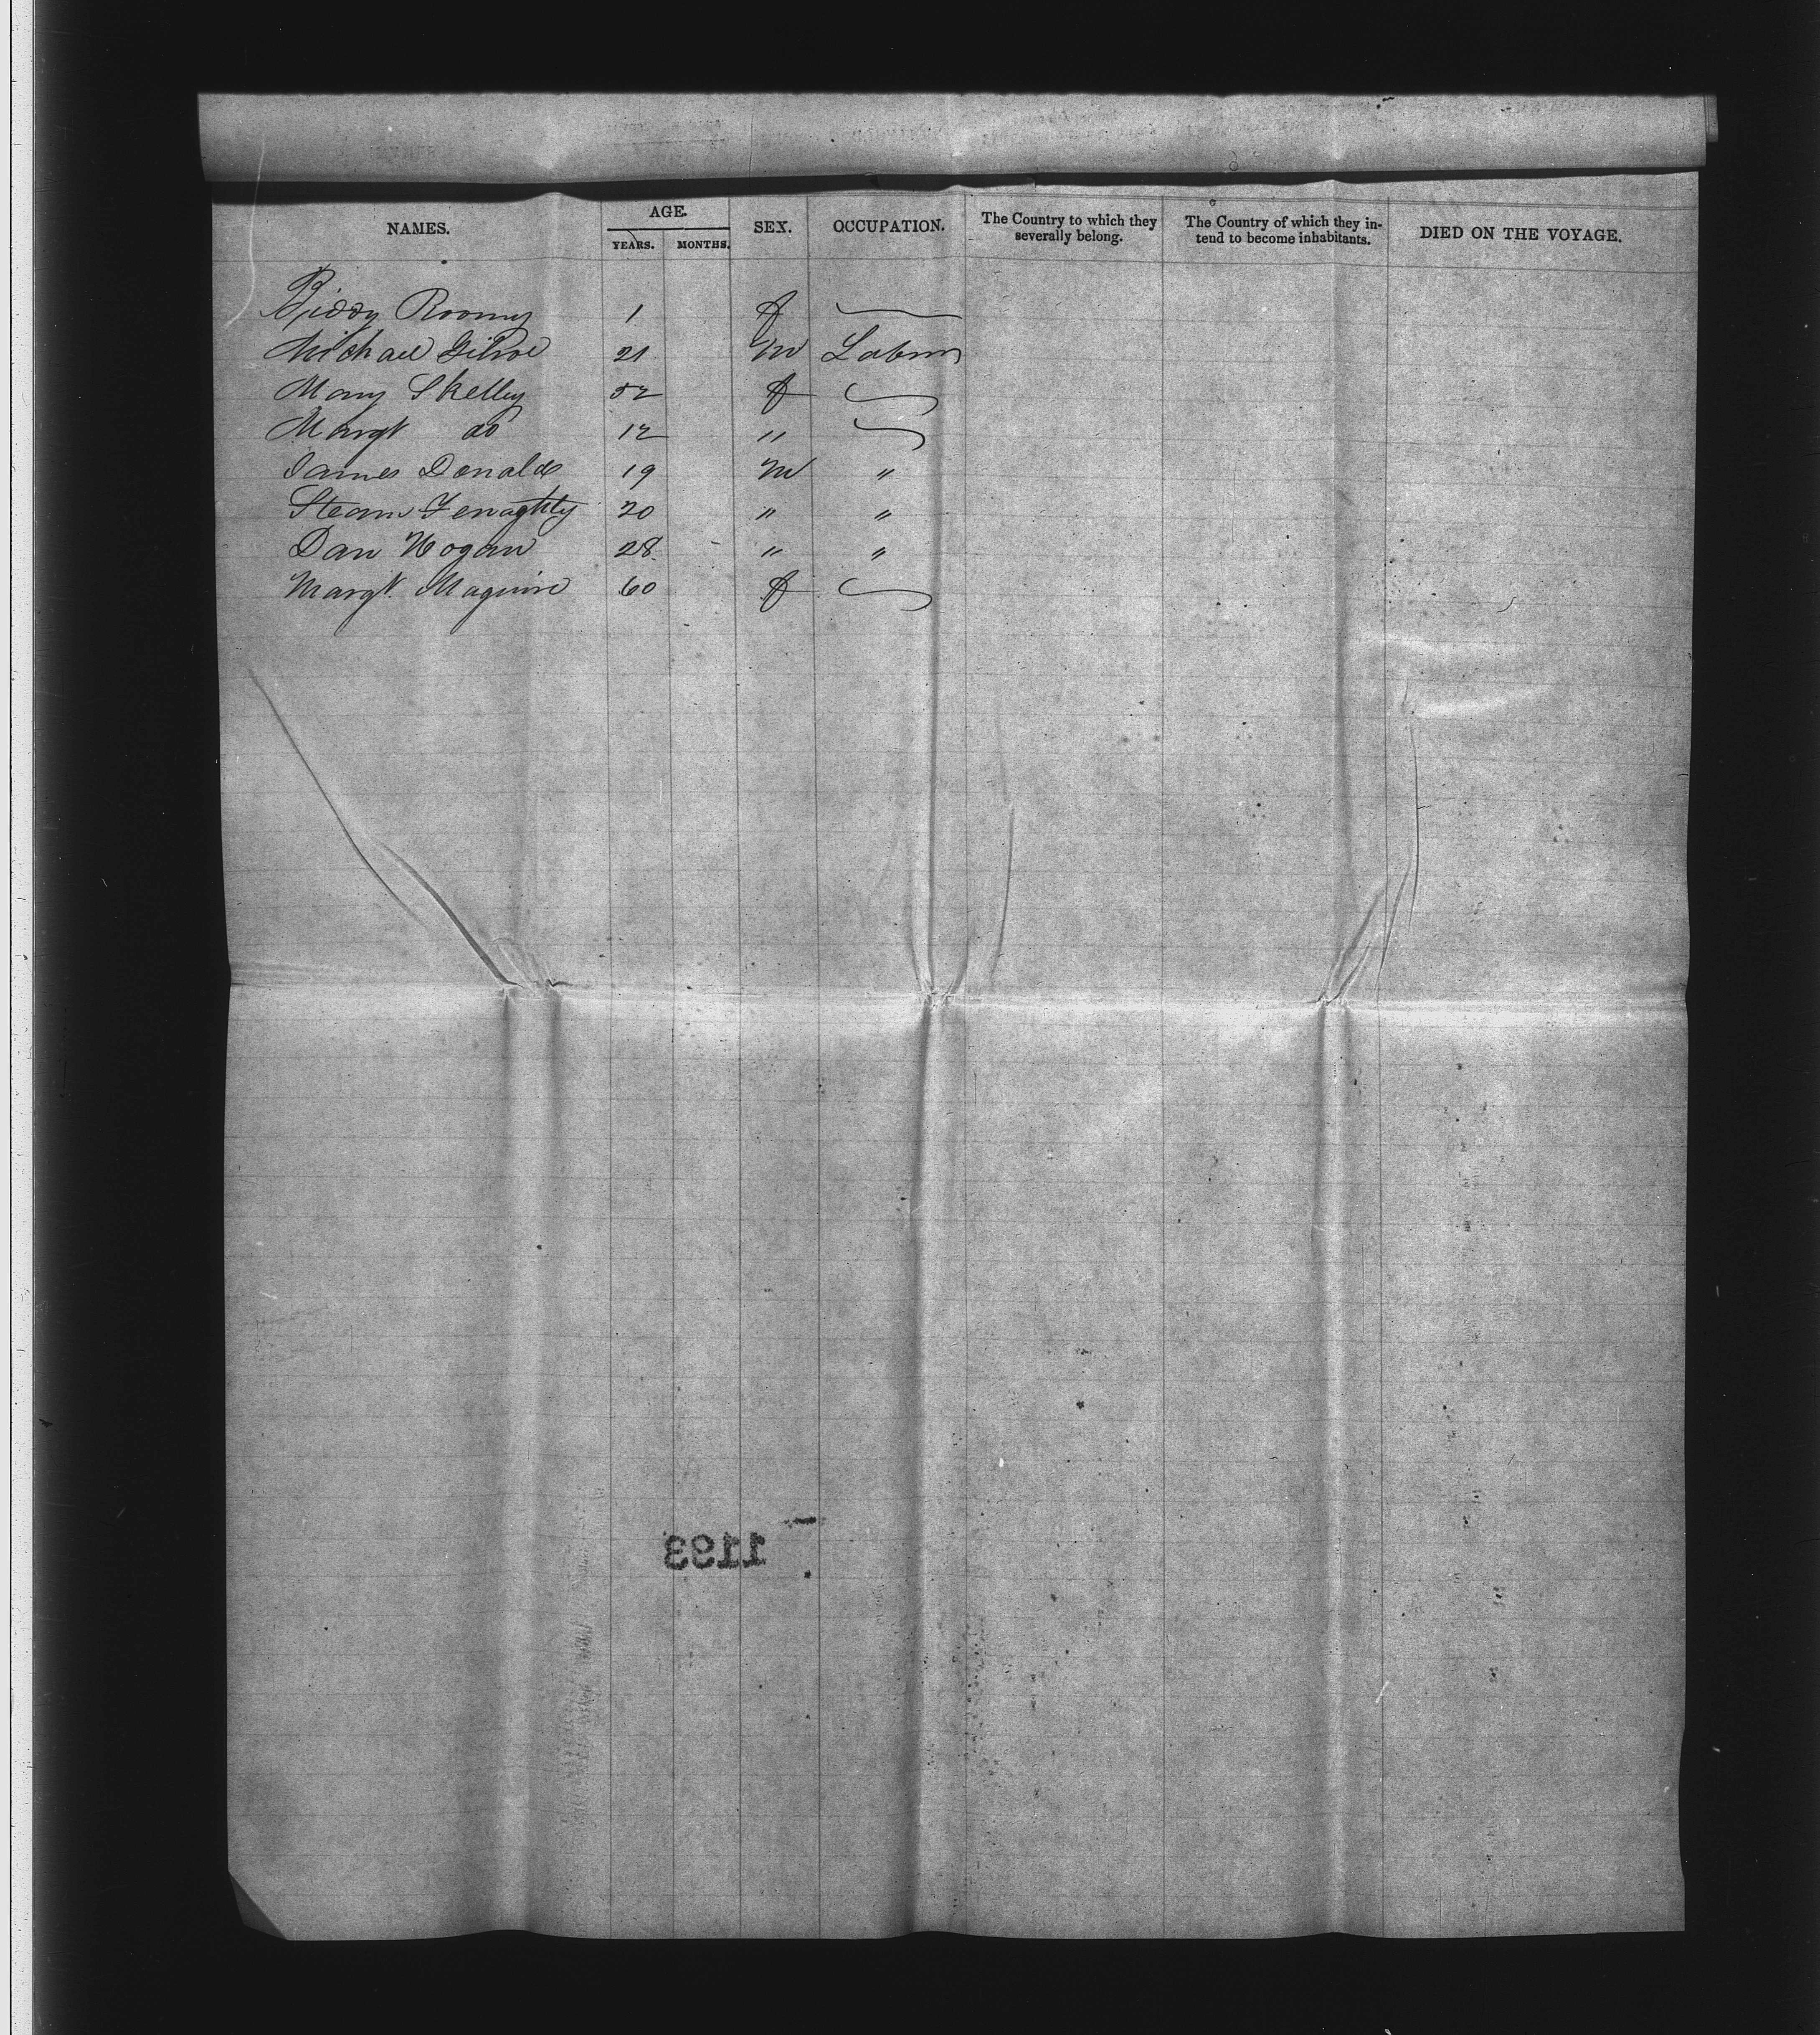 NAMES. AGE. YEARS. MONTHS. SEX. OCCUPATION. The Country to which they severally belong. The Country of which they intend to become inhabitants. DIED ON THE VOYAGE.
Biddy Roony 1 f
Michael Gilroe 21 M Labour
Mary Skelley 52 f
Margt do 12 "
James Donalds 19 M "
Fenaghty 20 " "
Dan Hogan 28 " "
Margt. Maguire 60 f
1193